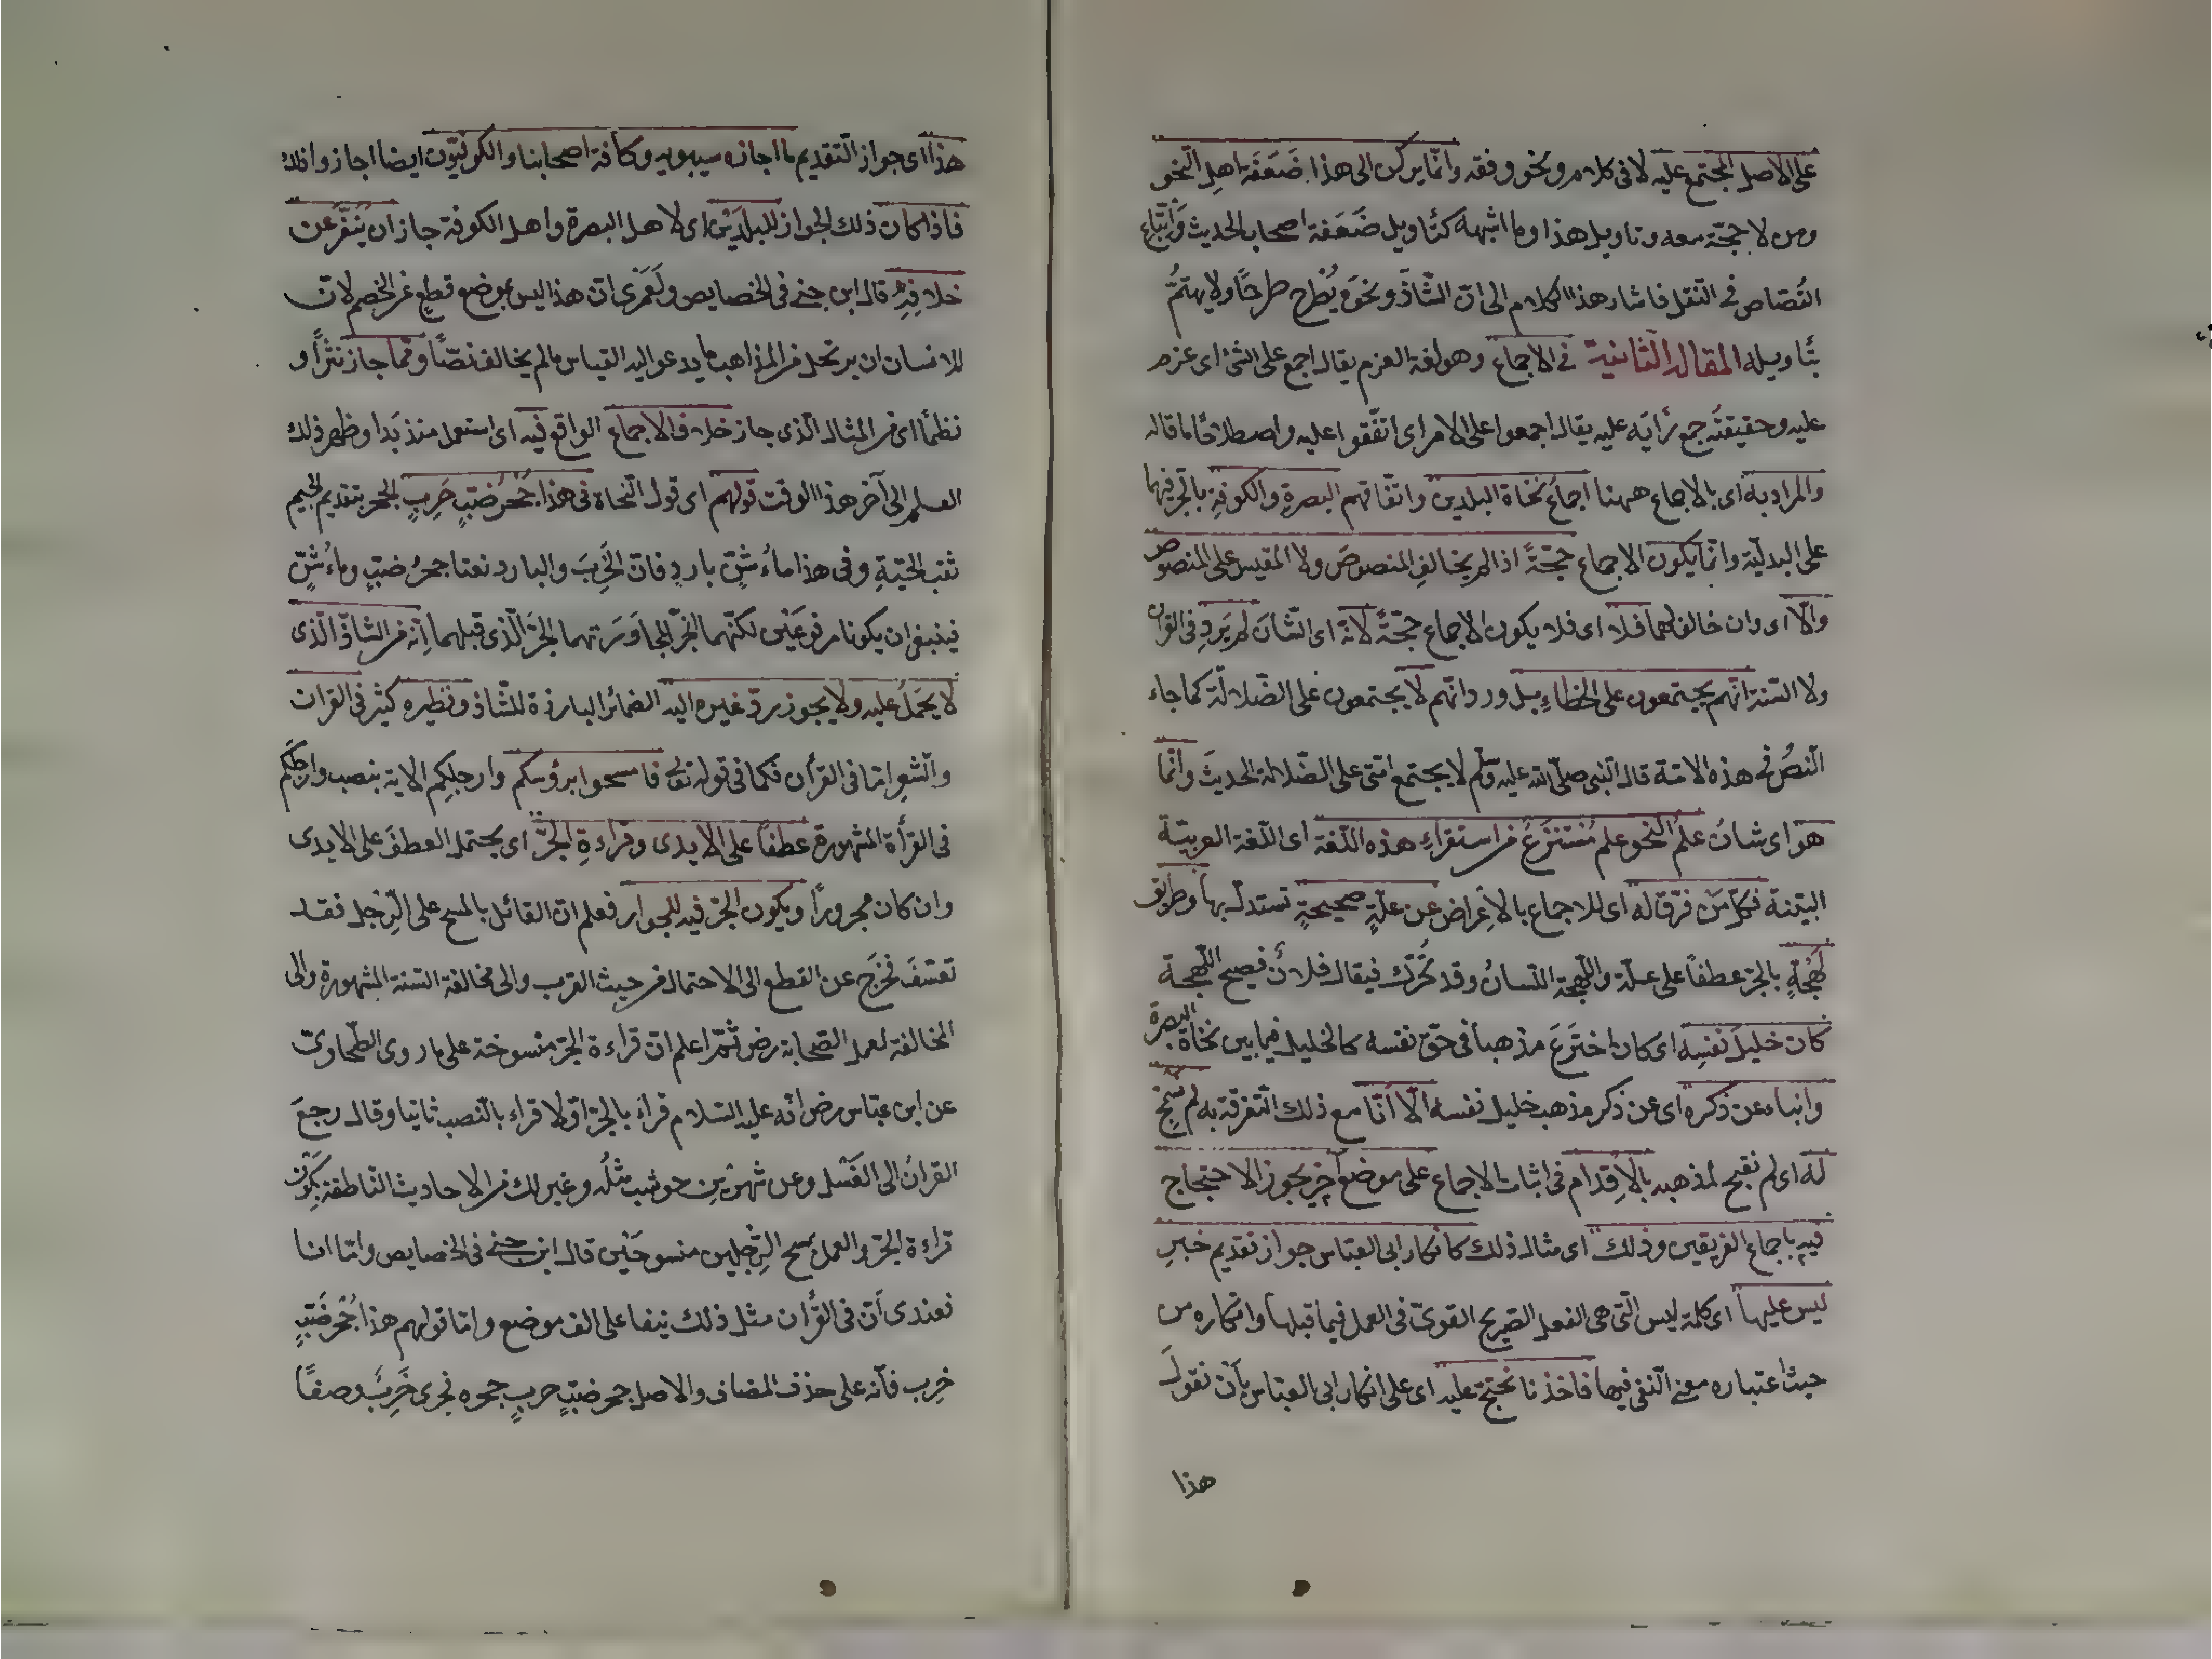 على الاصل المجتمع عليه لا فى كلام ونحو وفقه وانّما يركن الى هذا ضَعَفَة اهل النّحو
ومن لا حجّة معه وتاويل هذا وما اشبهه كتاويل ضَعَفة اصحاب الحديث وَاتّباع
القُصّاص فى النّقل فاشار هذا الكلام الى انّ الشّاذّ ونحوه يُطرح طرحًا ولا يهتمُّ
بتاويله المقالة الثانية فى الاجماع وهو لغة العزم يقال اجمع على الشئ اى عزم
عليه وحقيقتُه جمع رَأيَه عليه يقال اجمعوا على الامر اى اتّفقوا عليه واصطلاحًا ما قاله
والمراد به اى بالاجماع ههنا اجماعُ نُحاة البلدين واتّفاقهم البصرةِ والكوفةِ بالجرّ فيهما
على البدليّة وانّما يكون الاجماع حجّةً اذا لم يخالف المنصوصَ ولا المقيس على المنصوص
والّا اى وان خالفهما فلا اى فلا يكون الاجماع حجّةً لانّه اى الشّانَ لم يَرِد فى القران
ولا السّنة انّهم يجتمعون على الخطاءِ بل ورد انّهم لا يجتمعون على الضّلالة كما جاء
النّصُ فى هذه الامّة قال النّبى صلّى الله عليه وسلّم لا يجتمع امّتى على الضّلالة الحديثَ وانّما
هو اى شانُ علمُ النّحو علم مُنْتَزَعٌ من استقراءِ هذه اللّغة اى اللّغة العربيّة
البيّنة فكلّ مَن فرّق له اى للاجماع بالاِعراض عن علّةٍ صحيحةٍ تستدلّ بها وطريق
لَهْجةٍ بالجرّ عطفاً على علّة واللّهجة اللّسانُ وقد تُحرّك فيقال فلانٌ فصيح اللّهجة
كان خليلَ نفسِه اى كان اختَرَعَ مذهبا فى حقّ نفسه كالخليل فيما بين نحاة البصرة
وانباء عن ذكره اى عن ذكر مذهب خليل نفسه الّا انّا مع ذلك التّفرقة به لم نسمح
له اى لم نقبح لمذهبه بالاِقدام فى اثبات الاجماع على موضع آخر يجوز الاحتجاج
فيه باجماع الفريقين وذلك اى مثال ذلك كانكار ابى العبّاس جواز تقديم خبرِ
ليس عليها اى كلمة ليس الّتى هى الفعل الصّريح القوىّ فى العمل فيما قبلها وانكاره من
حيث اعتباره معنى النّفى فيها فاخذنا نحتجّ عليه اى على انكار ابى العبّاس بأن نقولَ
هذا
هذا اى جواز التّقديم ما اجازه سيبويه وكافّة اصحابنا والكوفيّون ايضا اجازوا ذلك
فاذا كان ذلك الجواز للبلدَيْن اى لاهل البصرة واهل الكوفة جاز ان يُنَفَّرَ عن
خلافِه قال ابن جنى فى الخصايص ولَعَمْرى انّ هذا ليس بموضع قطعٍ عن الخصم لان
للانسان ان يرتحل من المذاهب ما يدعو اليه القياس ما لم يخالف نصّاً وممّا جاز نثرًا و
نظمًا اى من المثال الّذى جاز خلاف الاجماع الواقع فيه اى استعمل منذ بَدا وظهر ذلك
العلم الى آخر هذا الوقت قولهم اى قول النّحاة فى هذا جُحْرُ ضبٍّ خَرِبٍ الجحر بتقديم الجيم
ثقب الحيّةِ وفى هذا ماءُ شنٍّ باردٍ فانّ الخَرِبَ والبارد نعتا جحرُ ضبٍّ وماءُ شنٍّ
فينبغى ان يكونا مرفوعَيْن لكنّهما انجرّا لمجاوَرَتهما الجرَّ الّذى قبلهما اِنّه من الشّاذّ الّذى
لا يَحَمَلُ عليه ولا يجوز ردّ غيره اليه الضمائر البارزة للشّاذ ونظيره كثير فى القران
والشّعر امّا فى القرآن فكما فى قوله تعالى فامسحوا برؤسكم وارجلِكم الاية بنصب وارجلَكم
فى القرأة المشهورة عطفاً على الايدى وقراءةِ الجرِّ اى يحتمل العطفَ على الايدى
وان كان مجرورًا ويكون الجرّ فيه للجوار فعلم انّ القائل بالمسح على الرّجل فقد
تعسّفَ فخرَج عن القطع الى الاحتمال من حيث القرب والى مخالفة السّنة المشهورة والى
المخالفة لعمل الصّحابة رض ثمّ اعلم انّ قراءة الجرّ منسوخة على ما روى الطّحاوىّ
عن ابن عبّاس رض انّه عليه السّلام قراءَ بالجرّ اوّلا قراء بالنّصب ثانيا وقال رجعَ
القرانُ الى الغَسْل وعن شهرُ بن حوشب مثلُه وغير ذلك من الاحاديث النّاطقة بكَون
قراءة الجرّ والعمل بمسح الرِّجلين منسوخَيْن قال ابن جنى فى الخصايص وامّا انا
فعندى أنّ فى القُرأن مثل ذلك نيفا على الف موضع وامّا قولهم هذا جُحْرُ ضَبٍّ
خربٍ فانّه على حذف المضاف والاصل جحر ضبّ خربٍ جحره فجرى خَرِبٌ وصفًا